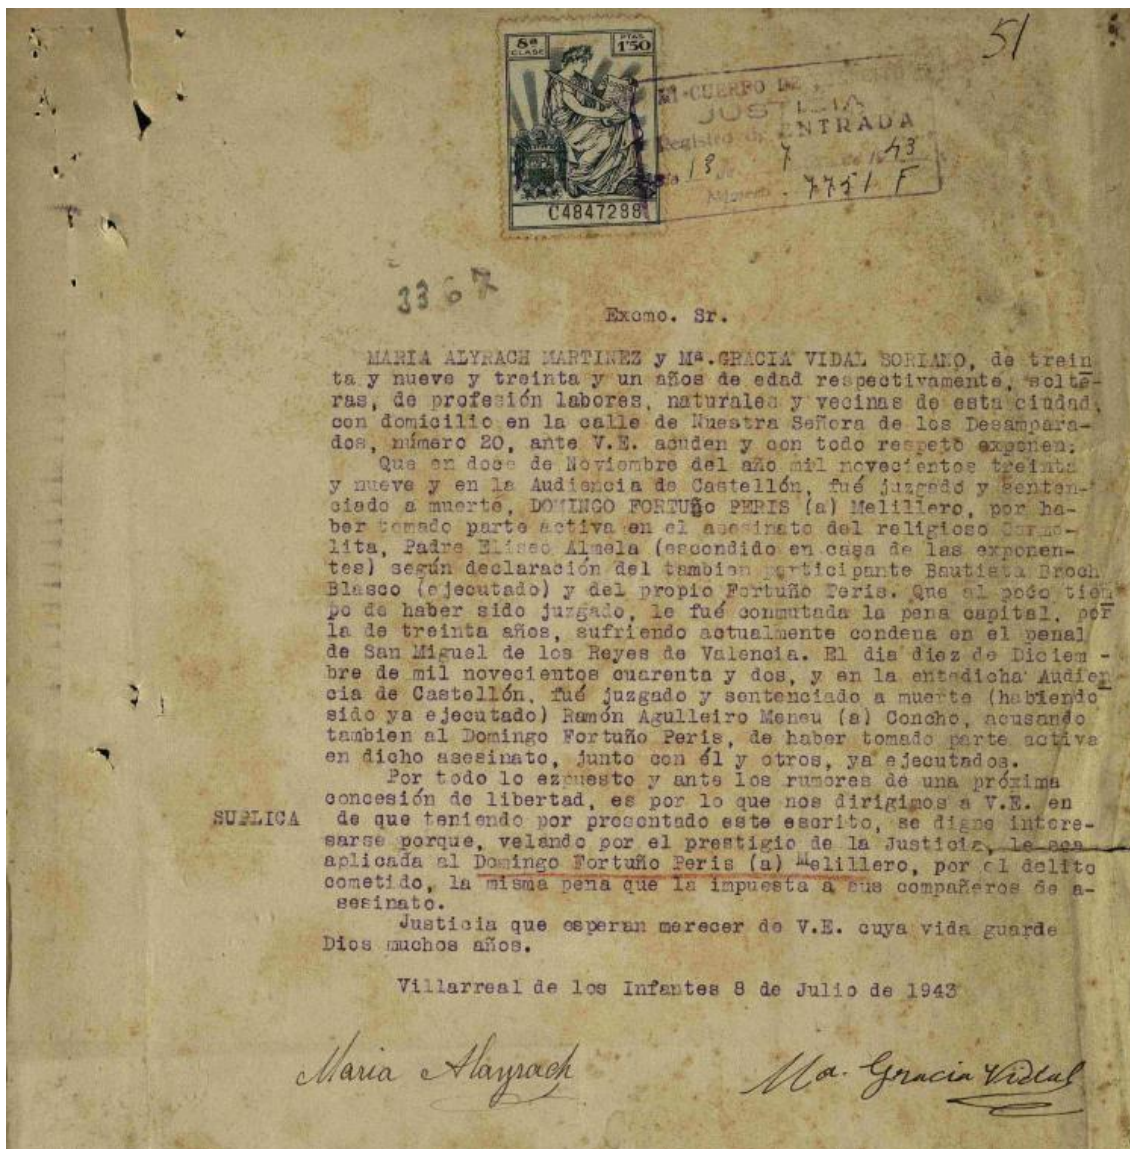 51
8ª CLASE
PTAS 1'50
C4847288
CUERPO DE
JUSTICIA
Registro de ENTRADA
13 de 7 de 1943
Número 7751 F
3367
Excmo. Sr.
MARIA ALYRACH MARTINEZ y Mª.GRACIA VIDAL SORIANO, de trein
ta y nueve y treinta y un años de edad respectivamente, solte-
ras, de profesión labores, naturales y vecinas de esta ciudad,
con domicilio en la calle de Nuestra Señora de los Desampara-
dos, número 20, ante V.E. acuden y con todo respeto exponen:
Que en doce de Noviembre del año mil novecientos treinta
y nueve y en la Audiencia de Castellón, fué juzgado y senten-
ciado a muerte, DOMINGO FORTUÑO PERIS (a) Melillero, por ha-
ber tomado parte activa en el asesinato del religioso Carme-
lita, Padre Eliseo Almela (escondido en casa de las exponen-
tes) según declaración del tambien participante Bautista Broch
Blasco (ejecutado) y del propio Fortuño Peris. Que al poco tiem
po de haber sido juzgado, le fué conmutada la pena capital, por
la de treinta años, sufriendo actualmente condena en el penal
de San Miguel de los Reyes de Valencia. El dia diez de Diciem -
bre de mil novecientos cuarenta y dos, y en la entedicha Audien
cia de Castellón, fué juzgado y sentenciado a muerte (habiendo
sido ya ejecutado) Ramón Agulleiro Meneu (a) Concho, acusando
tambien al Domingo Fortuño Peris, de haber tomado parte activa
en dicho asesinato, junto con él y otros, ya ejecutados.
Por todo lo ezpuesto y ante los rumores de una próxima
concesión de libertad, es por lo que nos dirigimos a V.E. en
SUPLICA de que teniendo por presentado este escrito, se digne intere-
sarse porque, velando por el prestigio de la Justicia, le sea
aplicada al Domingo Fortuño Peris (a) Melillero, por el delito
cometido, la misma pena que la impuesta a sus compañeros de a-
sesinato.
Justicia que esperan merecer de V.E. cuya vida guarde
Dios muchos años.
Villarreal de los Infantes 8 de Julio de 1943
Maria Alayrach
Mª. Gracia Vidal